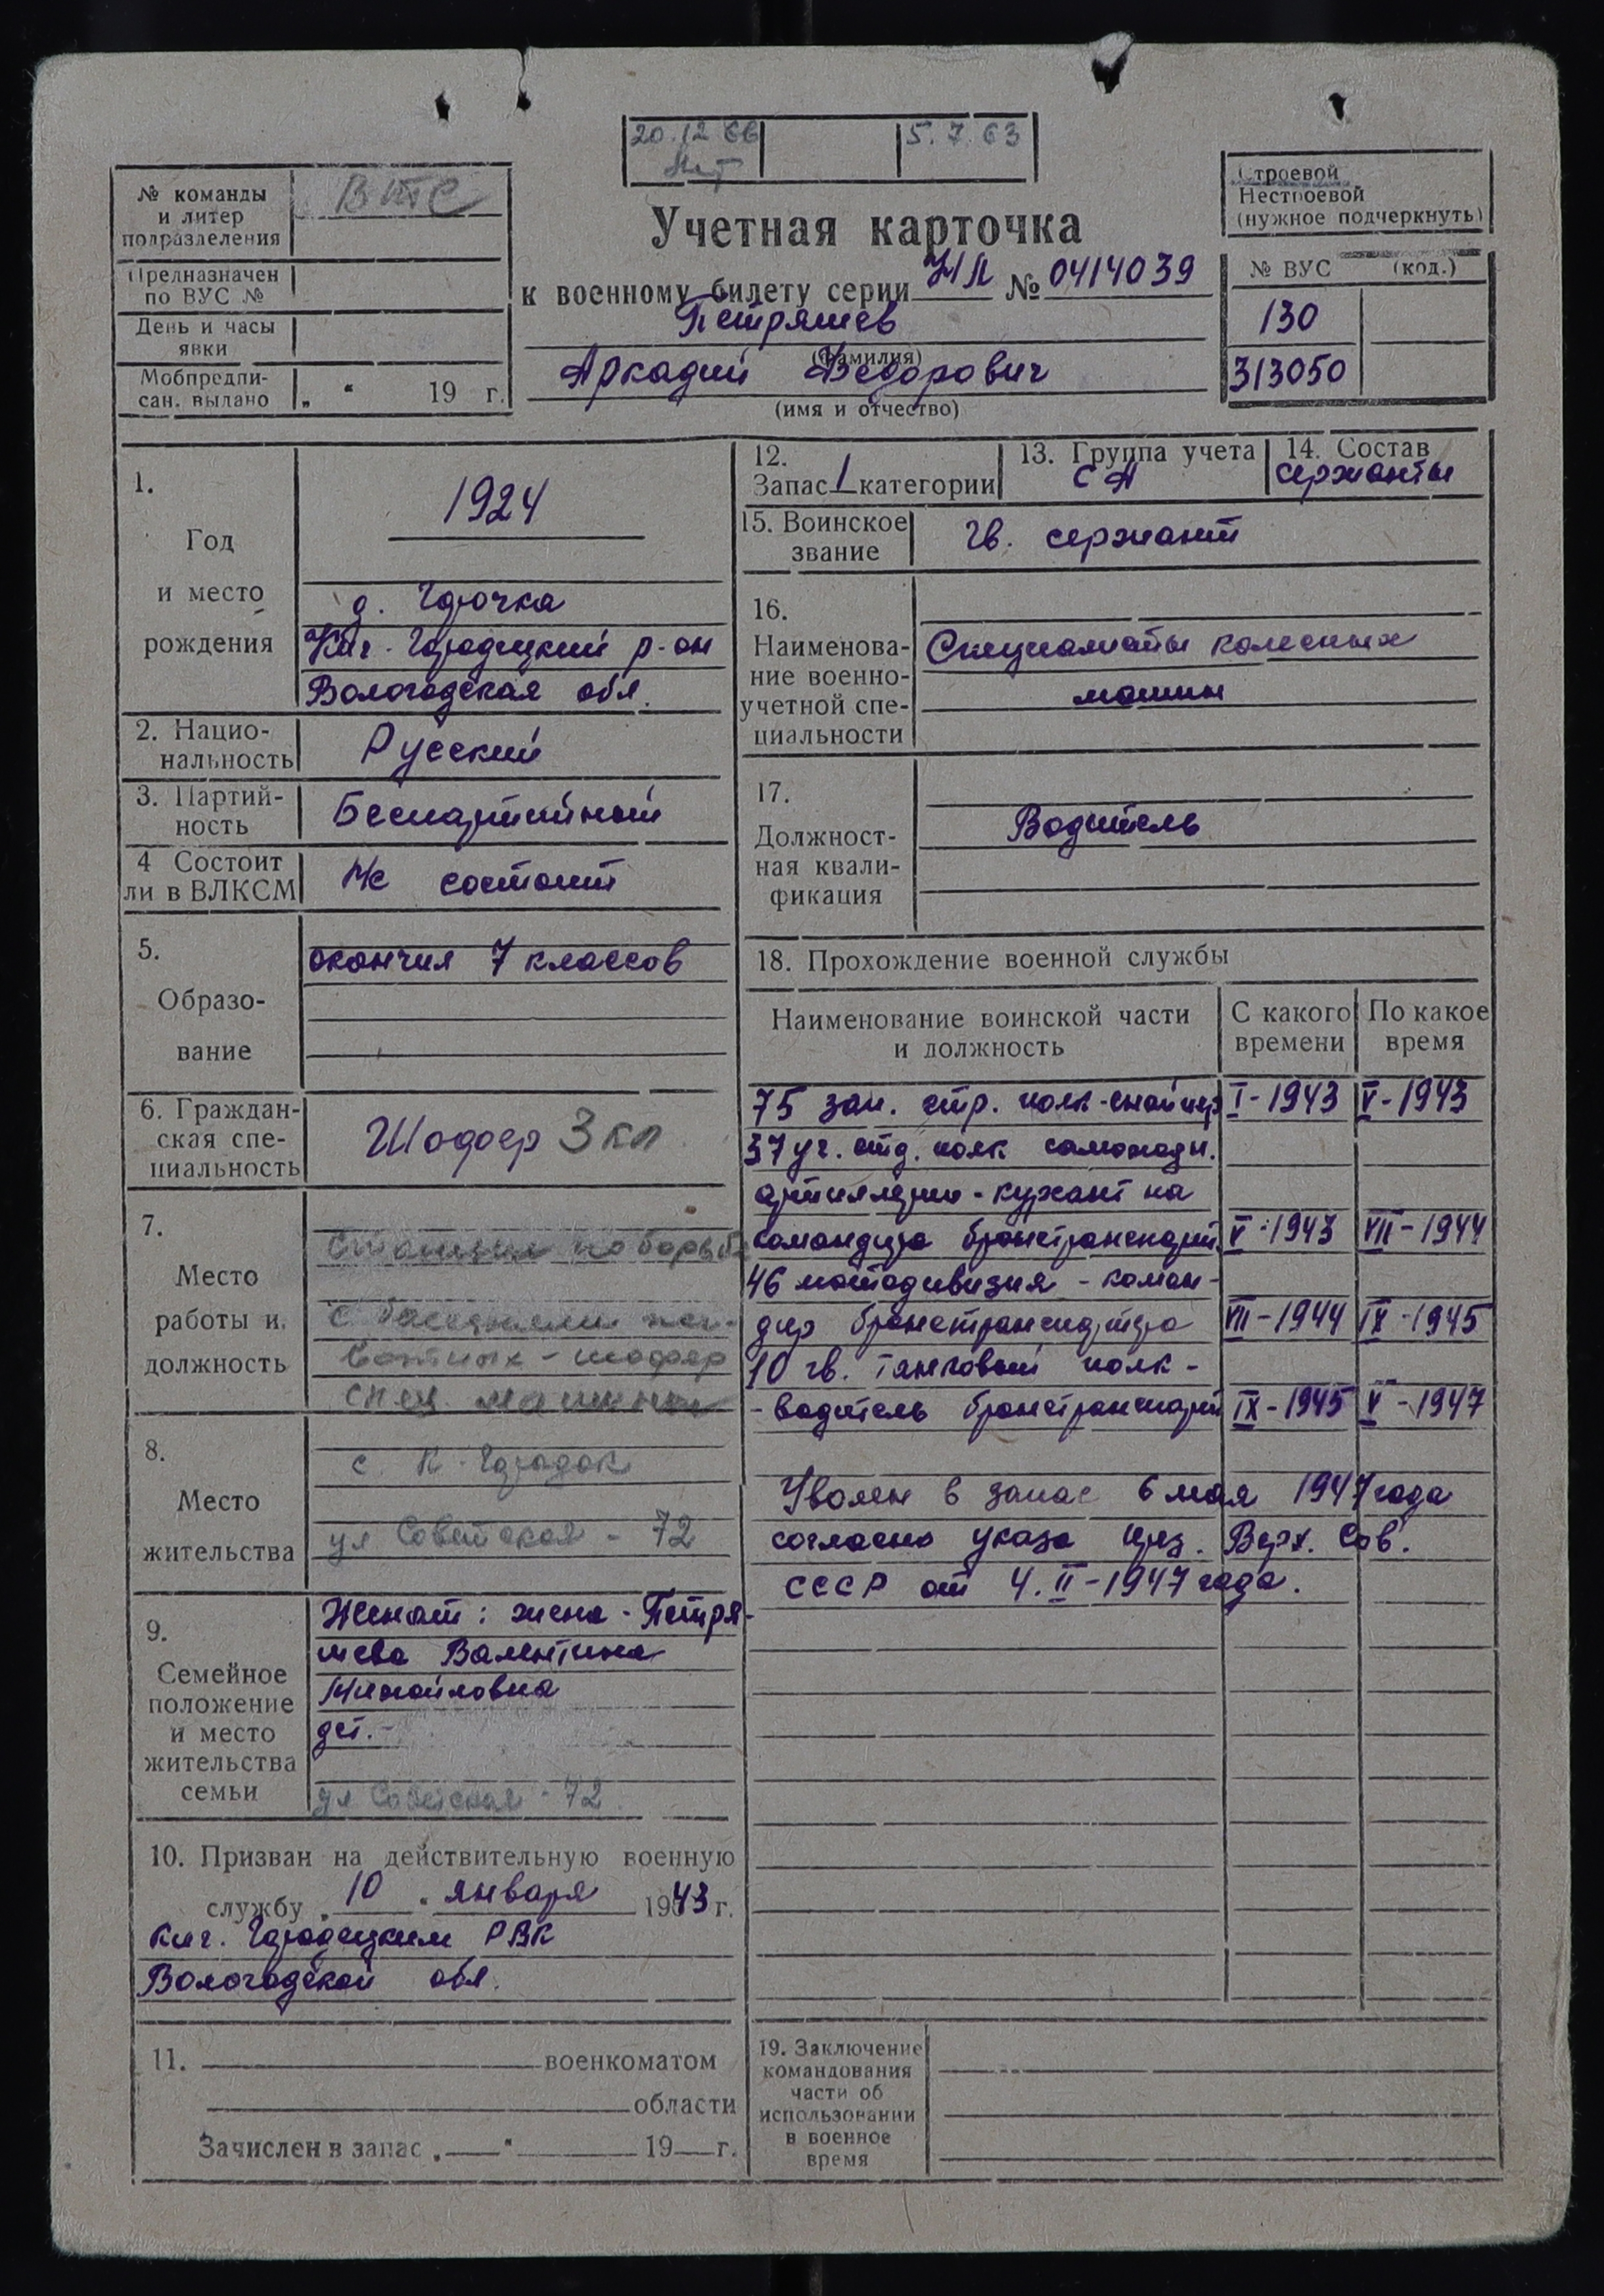 20.12 66
5.7.63
№ команды
и литер
подразделения
ВПС
Предназначен
по ВУС №
День и часы
явки
Мобпредпи-
сан. выдано „ “ 19 г.
Учетная карточка
к военному билету серии НЛ № 0414039
Петряшев
(фамилия)
Аркадий Федорович
(имя и отчество)
Строевой
Нестроевой
(нужное подчеркнуть)
№ ВУС (код.)
130
313050
1.
Год
и место
рождения
1924
д. Горочка
Кич-Городецкий р-он
Вологодская обл.
2. Нацио-
нальность
Русский
3. Партий-
ность
Беспартийный
4 Состоит
ли в ВЛКСМ
Не состоит
5.
Образо-
вание
окончил 7 классов
6. Граждан-
ская спе-
циальность
Шофер 3 кл
7.
Место
работы и
должность
Станция по борьбе
с болезнями жи-
вотных - шофер
спец машины
8.
Место
жительства
с. К-Городок
ул Советская - 72
9.
Семейное
положение
и место
жительства
семьи
Женат: жена - Петря-
шева Валентина
Михайловна
дет. -
ул Советская - 72
10. Призван на действительную военную
службу „ 10 “ января 1943 г.
Кич. Городецким РВК
Вологодской обл.
11. военкоматом
области
Зачислен в запас „ — “ 19—г.
12.
Запас 1 категории
13. Группа учета
СА
14. Состав
сержанты
15. Воинское
звание
Гв. сержант
16.
Наименова-
ние военно-
учетной спе-
циальности
Специалисты колесных
машин
17.
Должност-
ная квали-
фикация
Водитель
18. Прохождение военной службы
Наименование воинской части
и должность
С какого
времени
По какое
время
75 зап. стр. полк-снайпер I-1943 V-1943
37 уч. отд. полк самоходн.
артиллерии - курсант на
командира бронетранспорт. V-1943 VII-1944
46 мотодивизия - коман-
дир бронетранспортера VII-1944 IX-1945
10 гв. танковый полк -
- водитель бронетранспорт IX-1945 V-1947
Уволен в запас 6 мая 1947 года
согласно указа През. Верх. Сов.
СССР от 4. II-1947 года.
19. Заключение
командования
части об
использовании
в военное
время